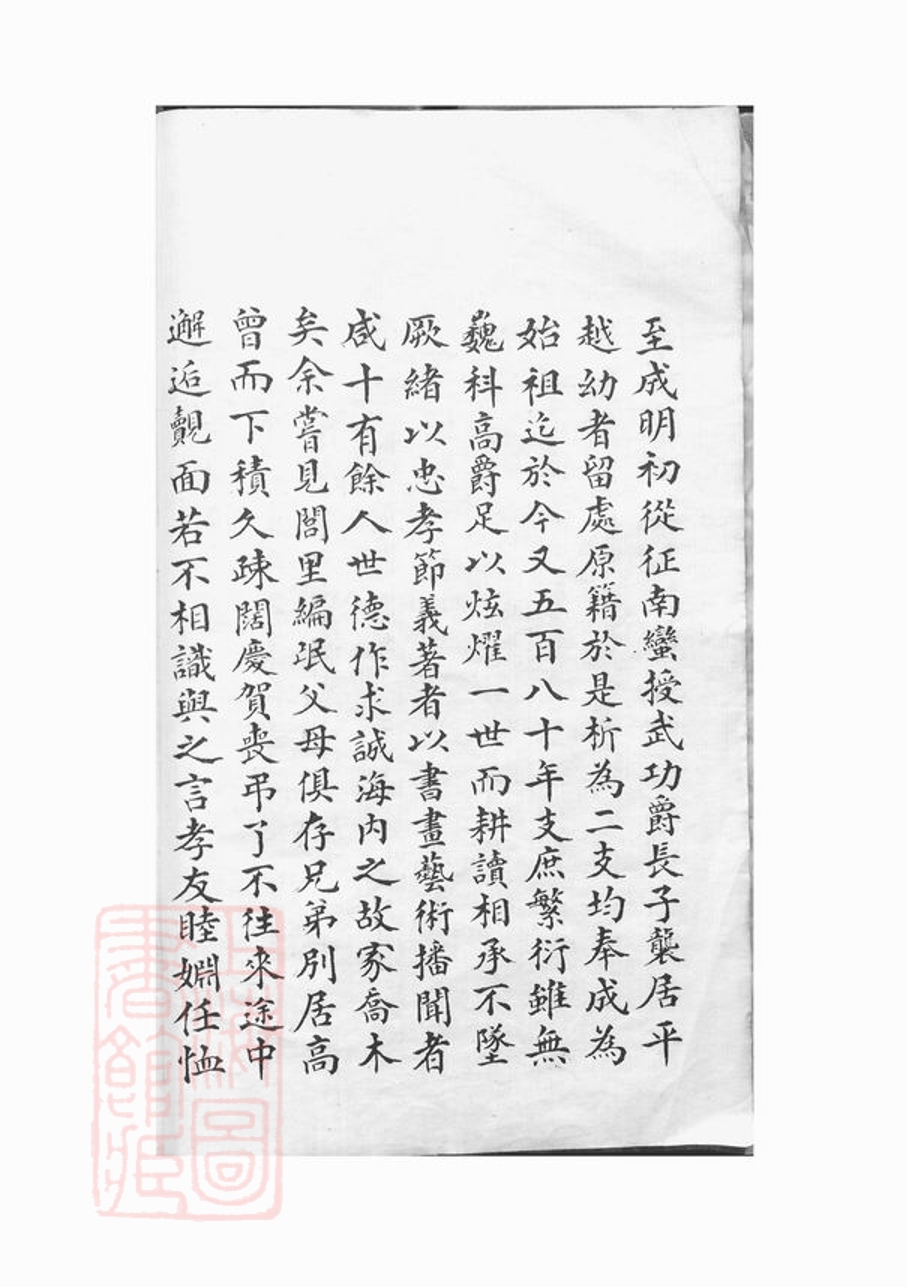 至成明初從征南蠻授武功爵長子襲居平
越幼者留處原籍於是析為二支均奉成為
始祖迄於今又五百八十年支庶繁衍雖無
巍科高爵足以炫燿一世而耕讀相承不墜
厥緒以忠孝節義著者以書畫藝術播聞者
咸十有餘人世德作求誠海內之故家喬木
矣余嘗見閭里編氓父母俱存兄弟別居高
曾而下積久疎闊慶賀喪弔了不往來途中
邂逅覿面若不相識與之言孝友睦婣任恤